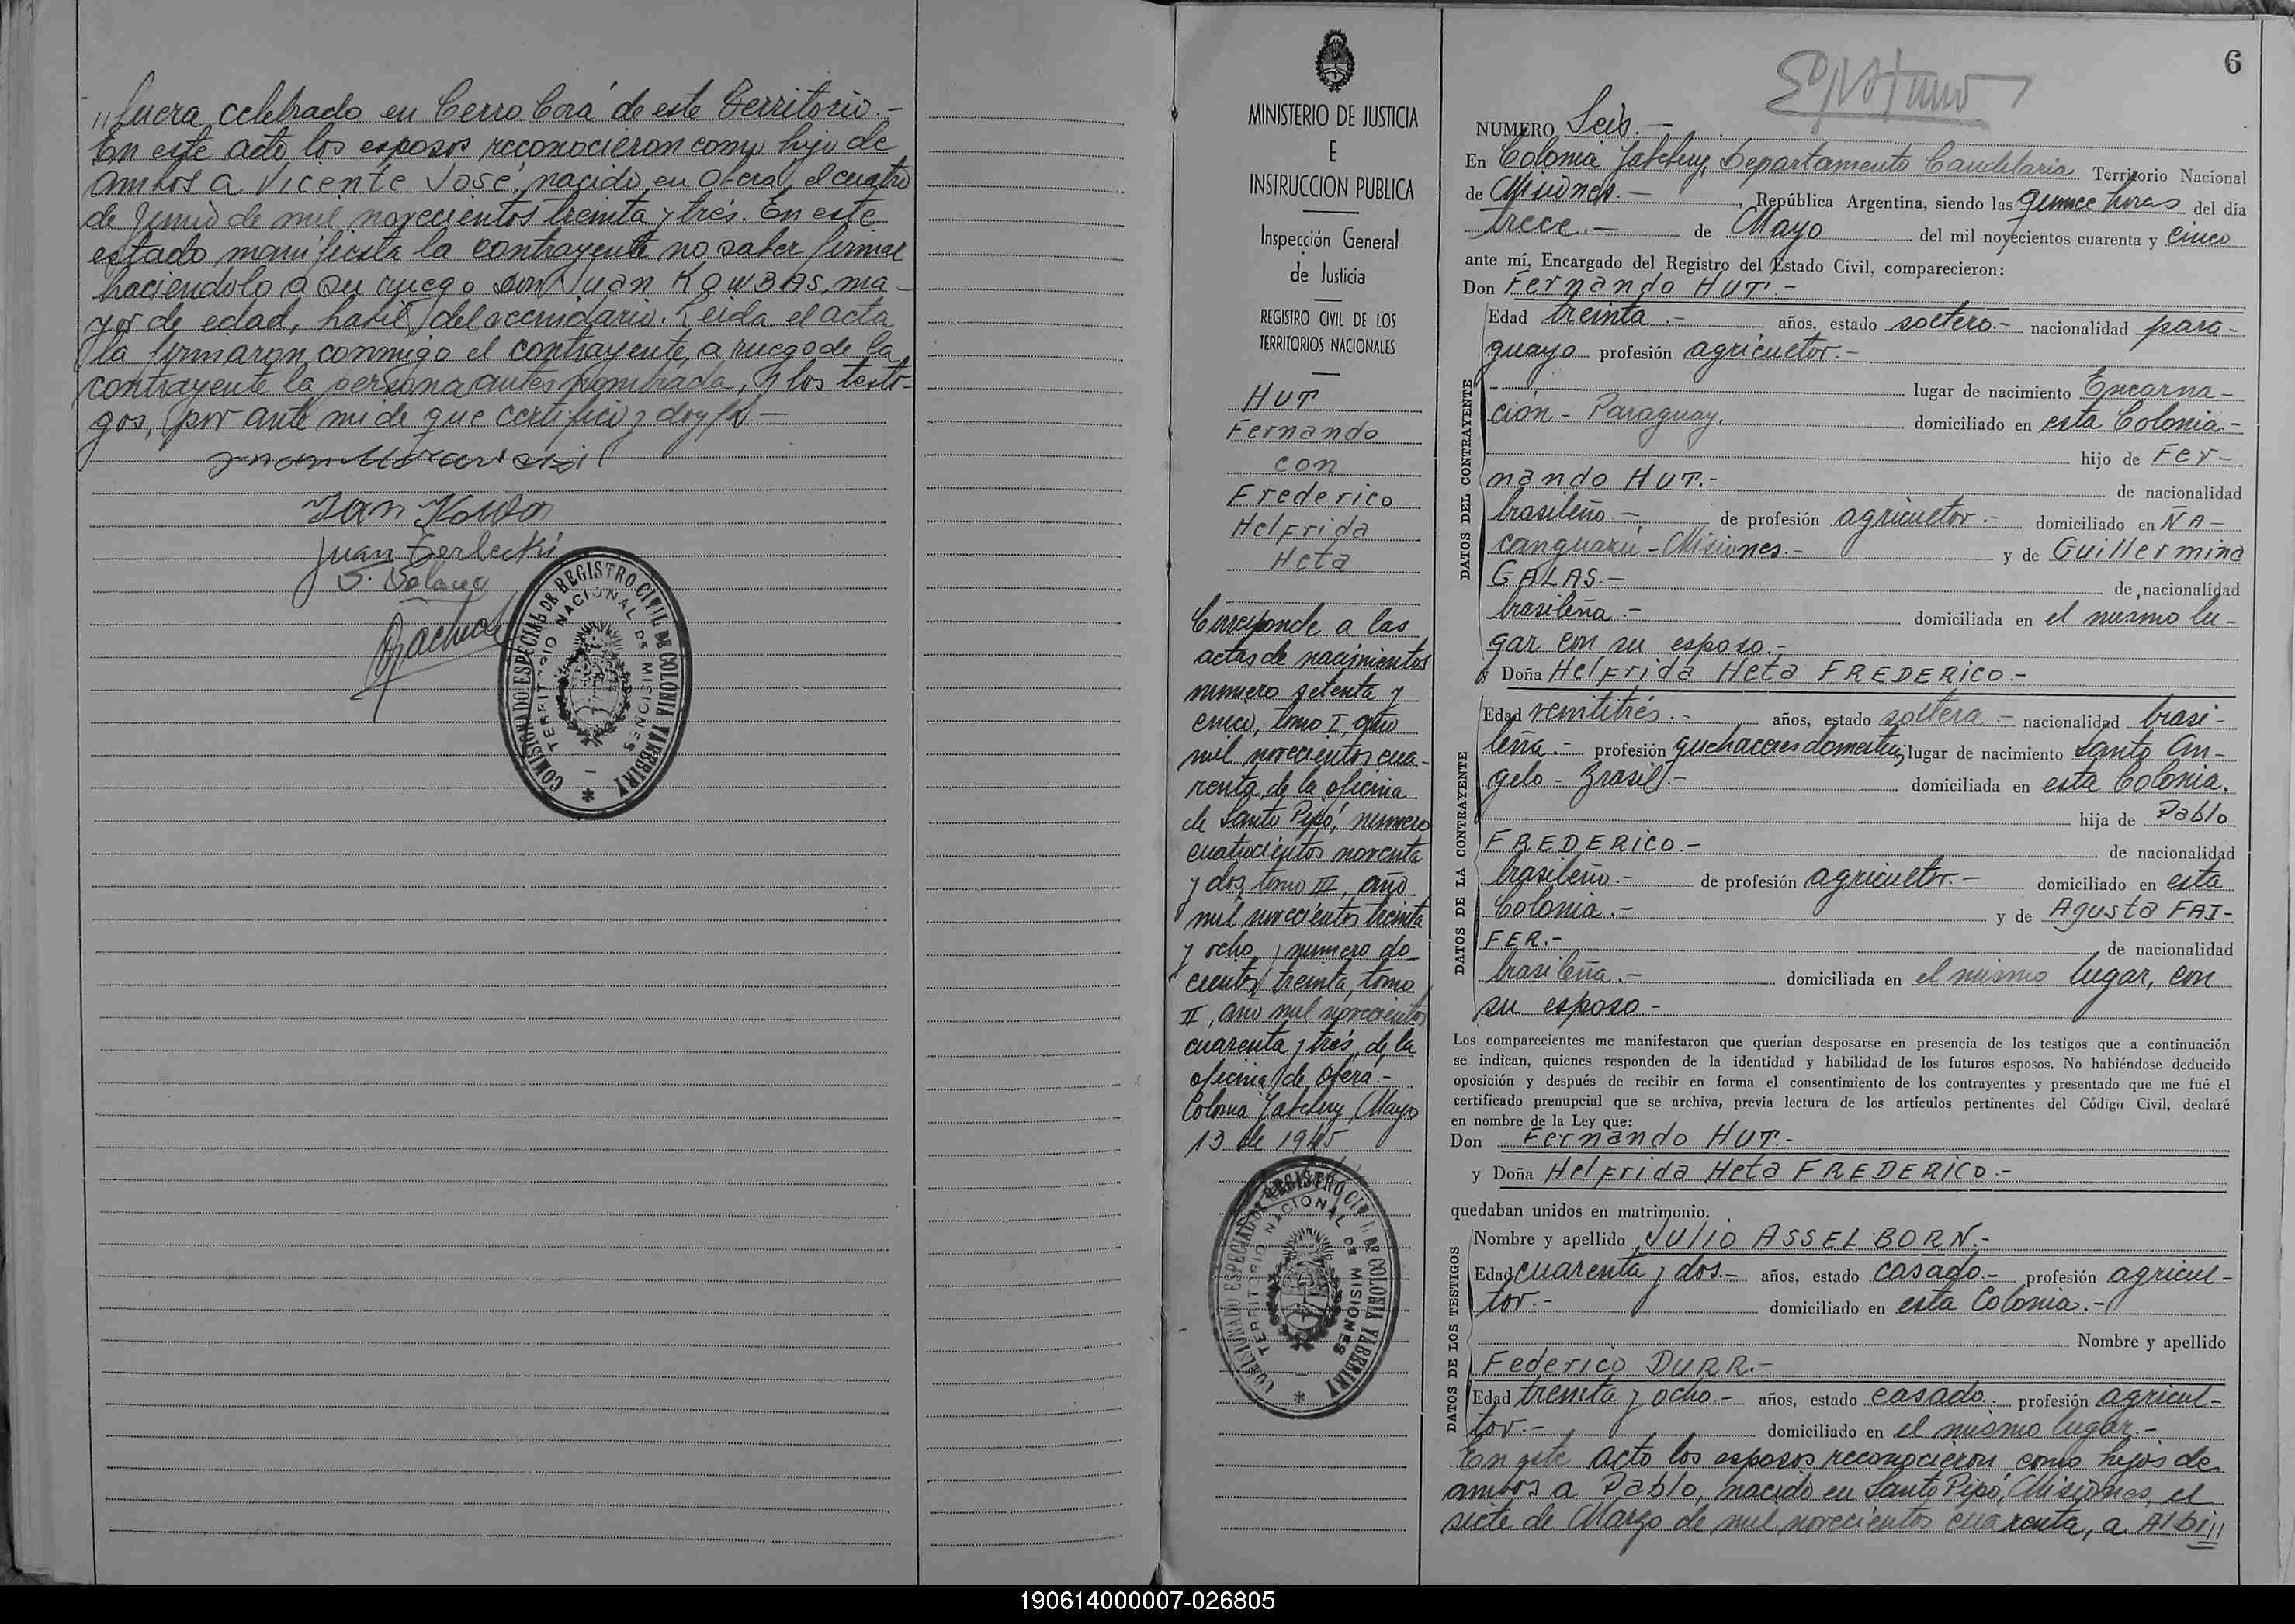 "fuera celebrado en Cerro Corá de este Territorio.-
En este acto los esposos reconocieron como hijo de
ambos a Vicente José, nacido en Oberá, el cuatro
de Junio de mil novecientos treinta y trés. En este
estado manifiesta la contrayente no saber firmar
haciendolo a su ruego don Juan KOWBAS, ma-
yor de edad, habil, del vecindario. Leida el acta
la firmaron conmigo el contrayente, a ruego de la
contrayente la persona antes nombrada, y los testi-
gos, por ante mi de que certifico y doy fé.-
Jan Kowba
Juan Terlecki
COMISIONADO ESPECIAL DE REGISTRO CIVIL DE COLONIA YABEBIRY
TERRITORIO NACIONAL DE MISIONES
MINISTERIO DE JUSTICIA
E
INSTRUCCION PUBLICA
Inspección General
de Justicia
REGISTRO CIVIL DE LOS
TERRITORIOS NACIONALES
HUT
Fernando
con
Frederico
Helfrida
Heta
Corresponde a las
actas de nacimientos
numero setenta y
cinco, tomo I, año
mil novecientos cua-
renta, de la oficina
de Santo Pipó, numero
cuatrocientos noventa
y dos, tomo III, año
mil novecientos treinta
y ocho, y numero do-
cientos treinta, tomo
II, año mil novecientos
cuarenta y trés, de la
oficina de Oberá.-
Colonia Yabebiry, Mayo
13 de 1945
COMISIONADO ESPECIAL DE REGISTRO CIVIL DE COLONIA YABEBIRY
TERRITORIO NACIONAL DE MISIONES
6
NUMERO Seis.-
En Colonia Yabebiry, Departamento Candelaria Territorio Nacional
de Misiones.- , República Argentina, siendo las quince horas del día
trece.- de Mayo del mil novecientos cuarenta y cinco
ante mí, Encargado del Registro del Estado Civil, comparecieron:
Don Fernando HUT.-
DATOS DEL CONTRAYENTE
Edad treinta.- años, estado soltero.- nacionalidad para-
guayo profesión agricultor.-
lugar de nacimiento Encarna-
ción - Paraguay. domiciliado en esta Colonia-
hijo de Fer-
nando HUT.- de nacionalidad
brasileño.- de profesión agricultor.- domiciliado en ÑA-
canguazú - Misiones.- y de Guillermina
GALAS.- de nacionalidad
brasileña.- domiciliada en el mismo lu-
gar con su esposo.-
y Doña Helfrida Heta FREDERICO.-
DATOS DE LA CONTRAYENTE
Edad veintitrés.- años, estado soltera - nacionalidad brasi-
leña.- profesión quehaceres domesticos, lugar de nacimiento Santo An-
gelo - Brasil.- domiciliada en esta Colonia.
hija de Pablo
FREDERICO.- de nacionalidad
brasileño.- de profesión agricultor.- domiciliado en esta
Colonia.- y de Agusta FAI-
FER.- de nacionalidad
brasileña.- domiciliada en el mismo lugar, con
su esposo.-
Los comparecientes me manifestaron que querían desposarse en presencia de los testigos que a continuación
se indican, quienes responden de la identidad y habilidad de los futuros esposos. No habiéndose deducido
oposición y después de recibir en forma el consentimiento de los contrayentes y presentado que me fué el
certificado prenupcial que se archiva, previa lectura de los artículos pertinentes del Código Civil, declaré
en nombre de la Ley que:
Don Fernando HUT.-
y Doña Helfrida Heta FREDERICO.-
quedaban unidos en matrimonio.
DATOS DE LOS TESTIGOS
Nombre y apellido Julio ASSELBORN.-
Edad cuarenta y dos.- años, estado casado.- profesión agricul-
tor.- domiciliado en esta Colonia.-
Nombre y apellido
Federico DURR.-
Edad treinta y ocho.- años, estado casado. profesión agricul-
tor.- domiciliado en el mismo lugar.-
En este acto los esposos reconocieron como hijos de
ambos a Pablo, nacido en Santo Pipó, Misiones, el
siete de Marzo de mil novecientos cuarenta, a Albi"
190614000007-026805